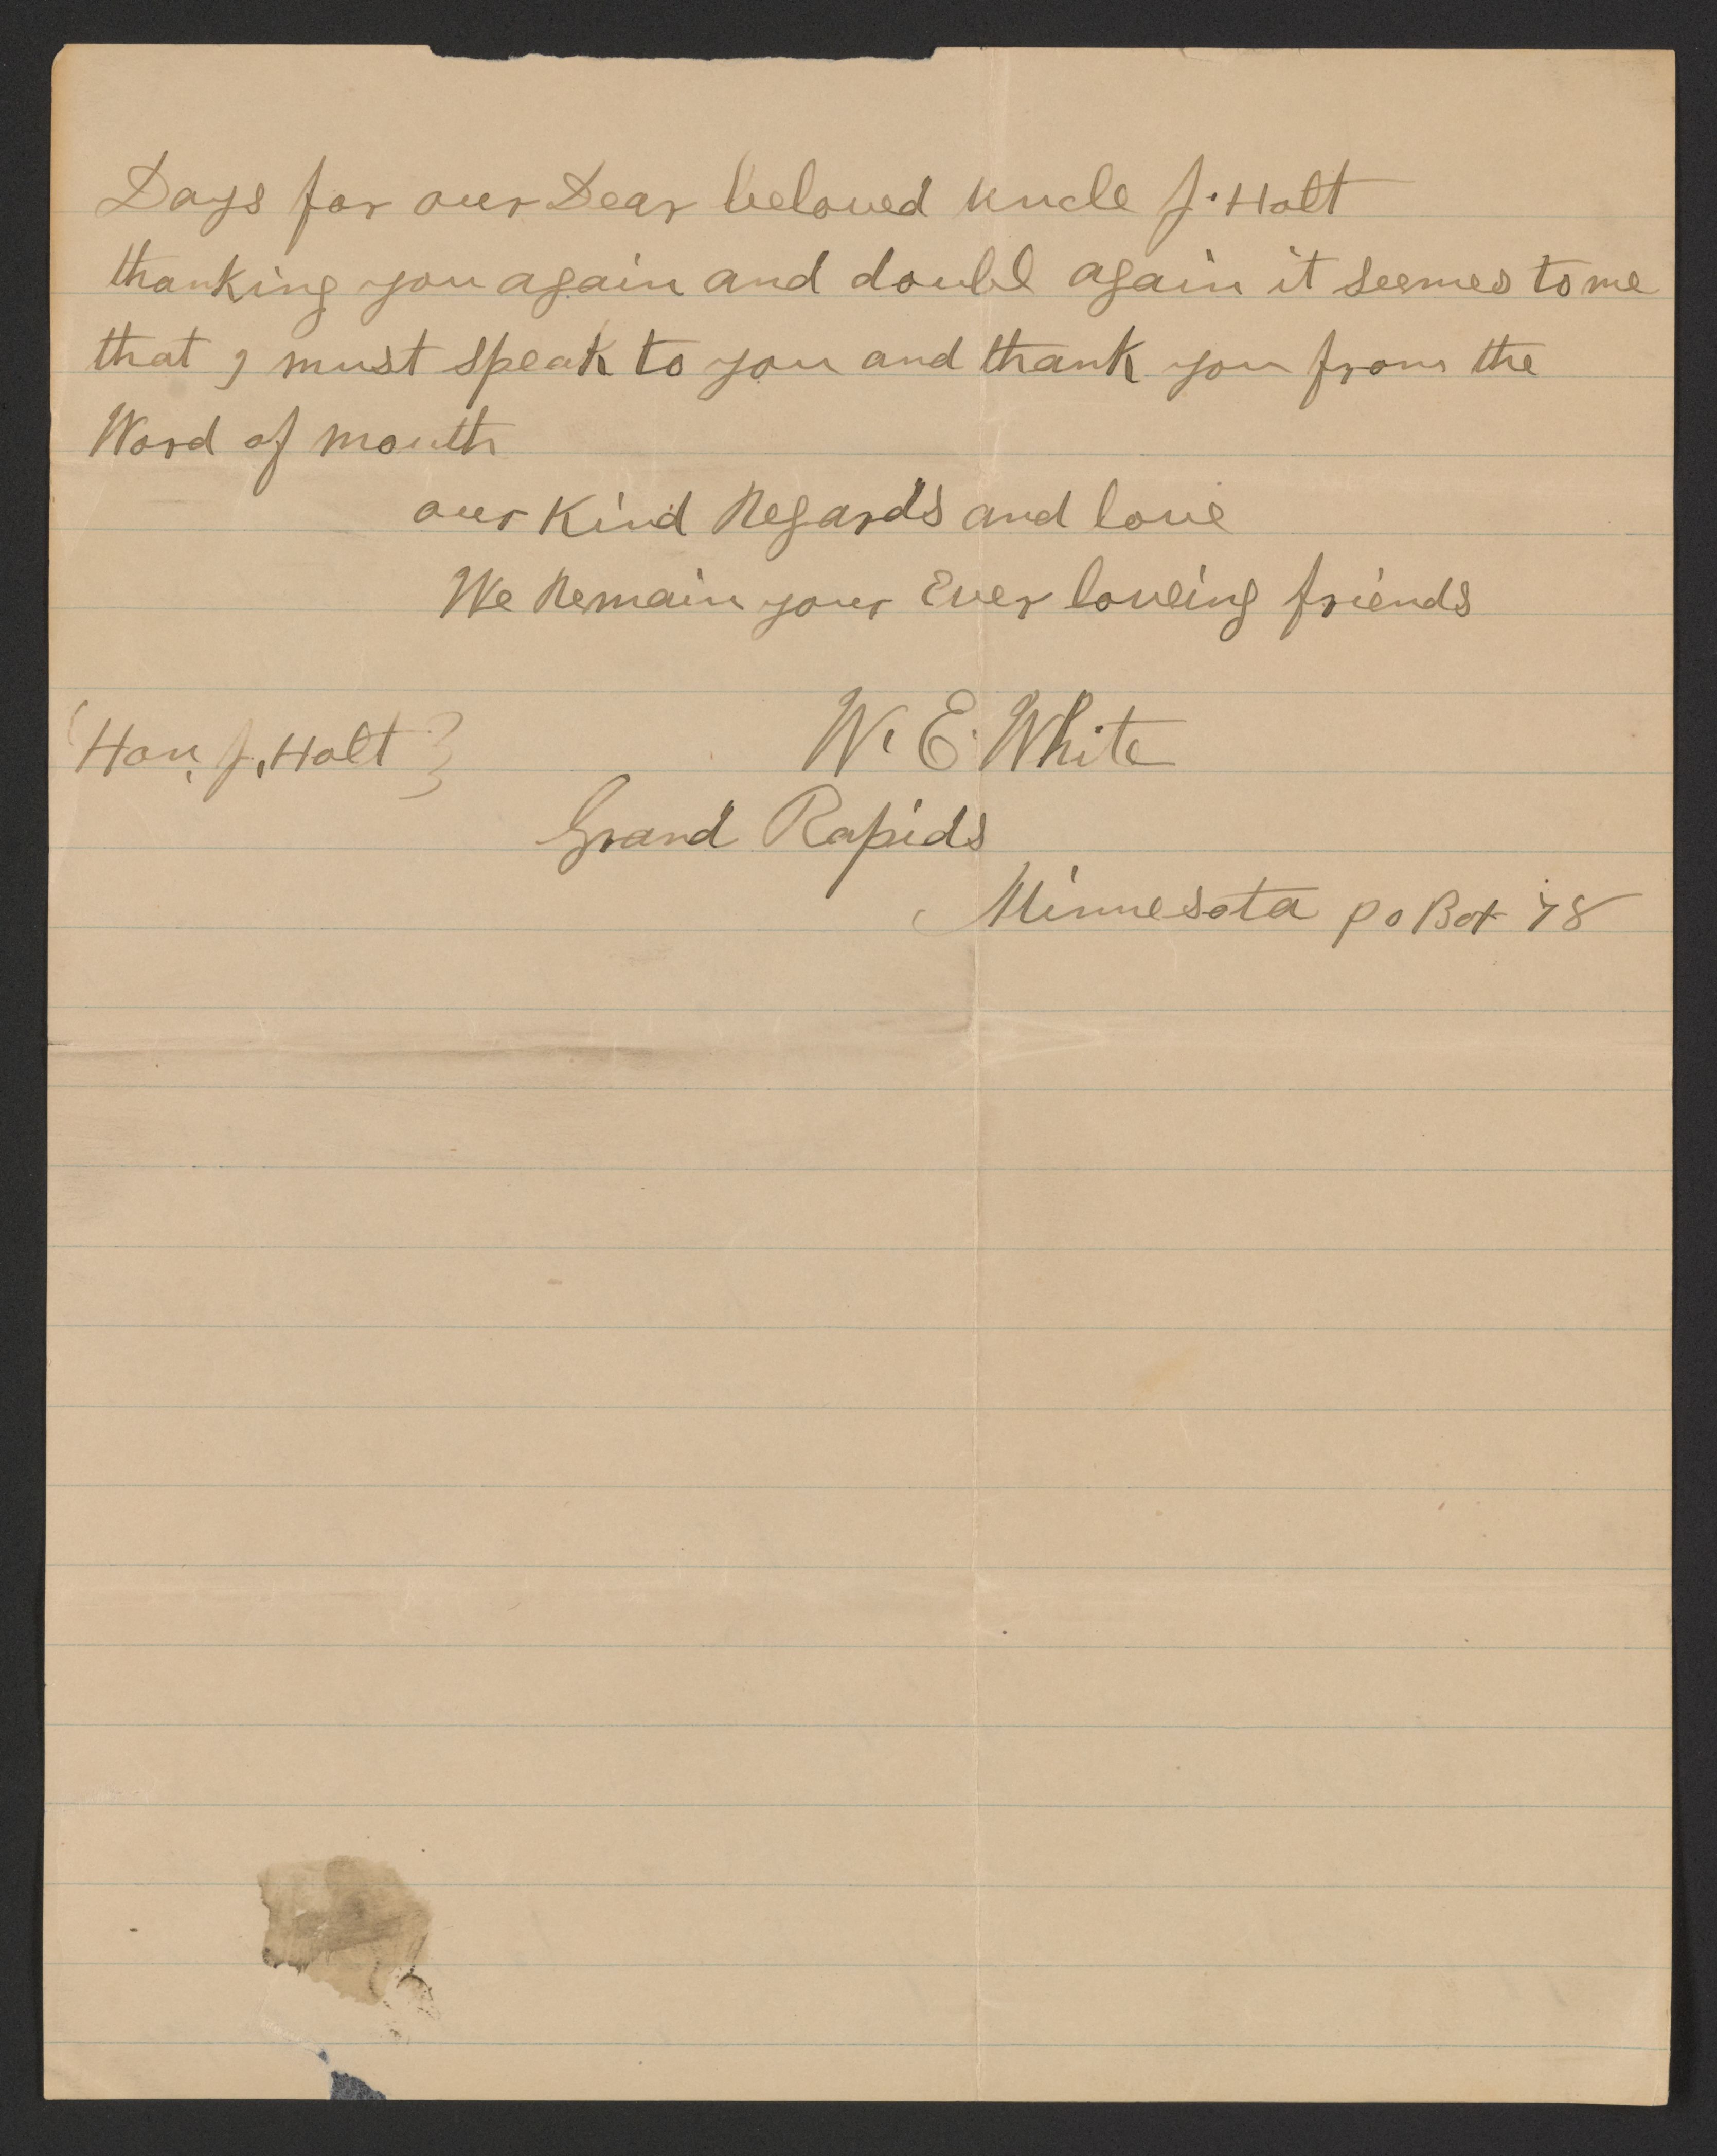 Days for our Dear beloved uncle J. Holt
thanking you again and doubl again it seemes to me
that I must speak to you and thank you from the
Word of mouth
our Kind Regards and love
We Remain your Ever loveing friends
(Hon. J. Holt} W. E. White
Grand Rapids
Minnesota po Box 78